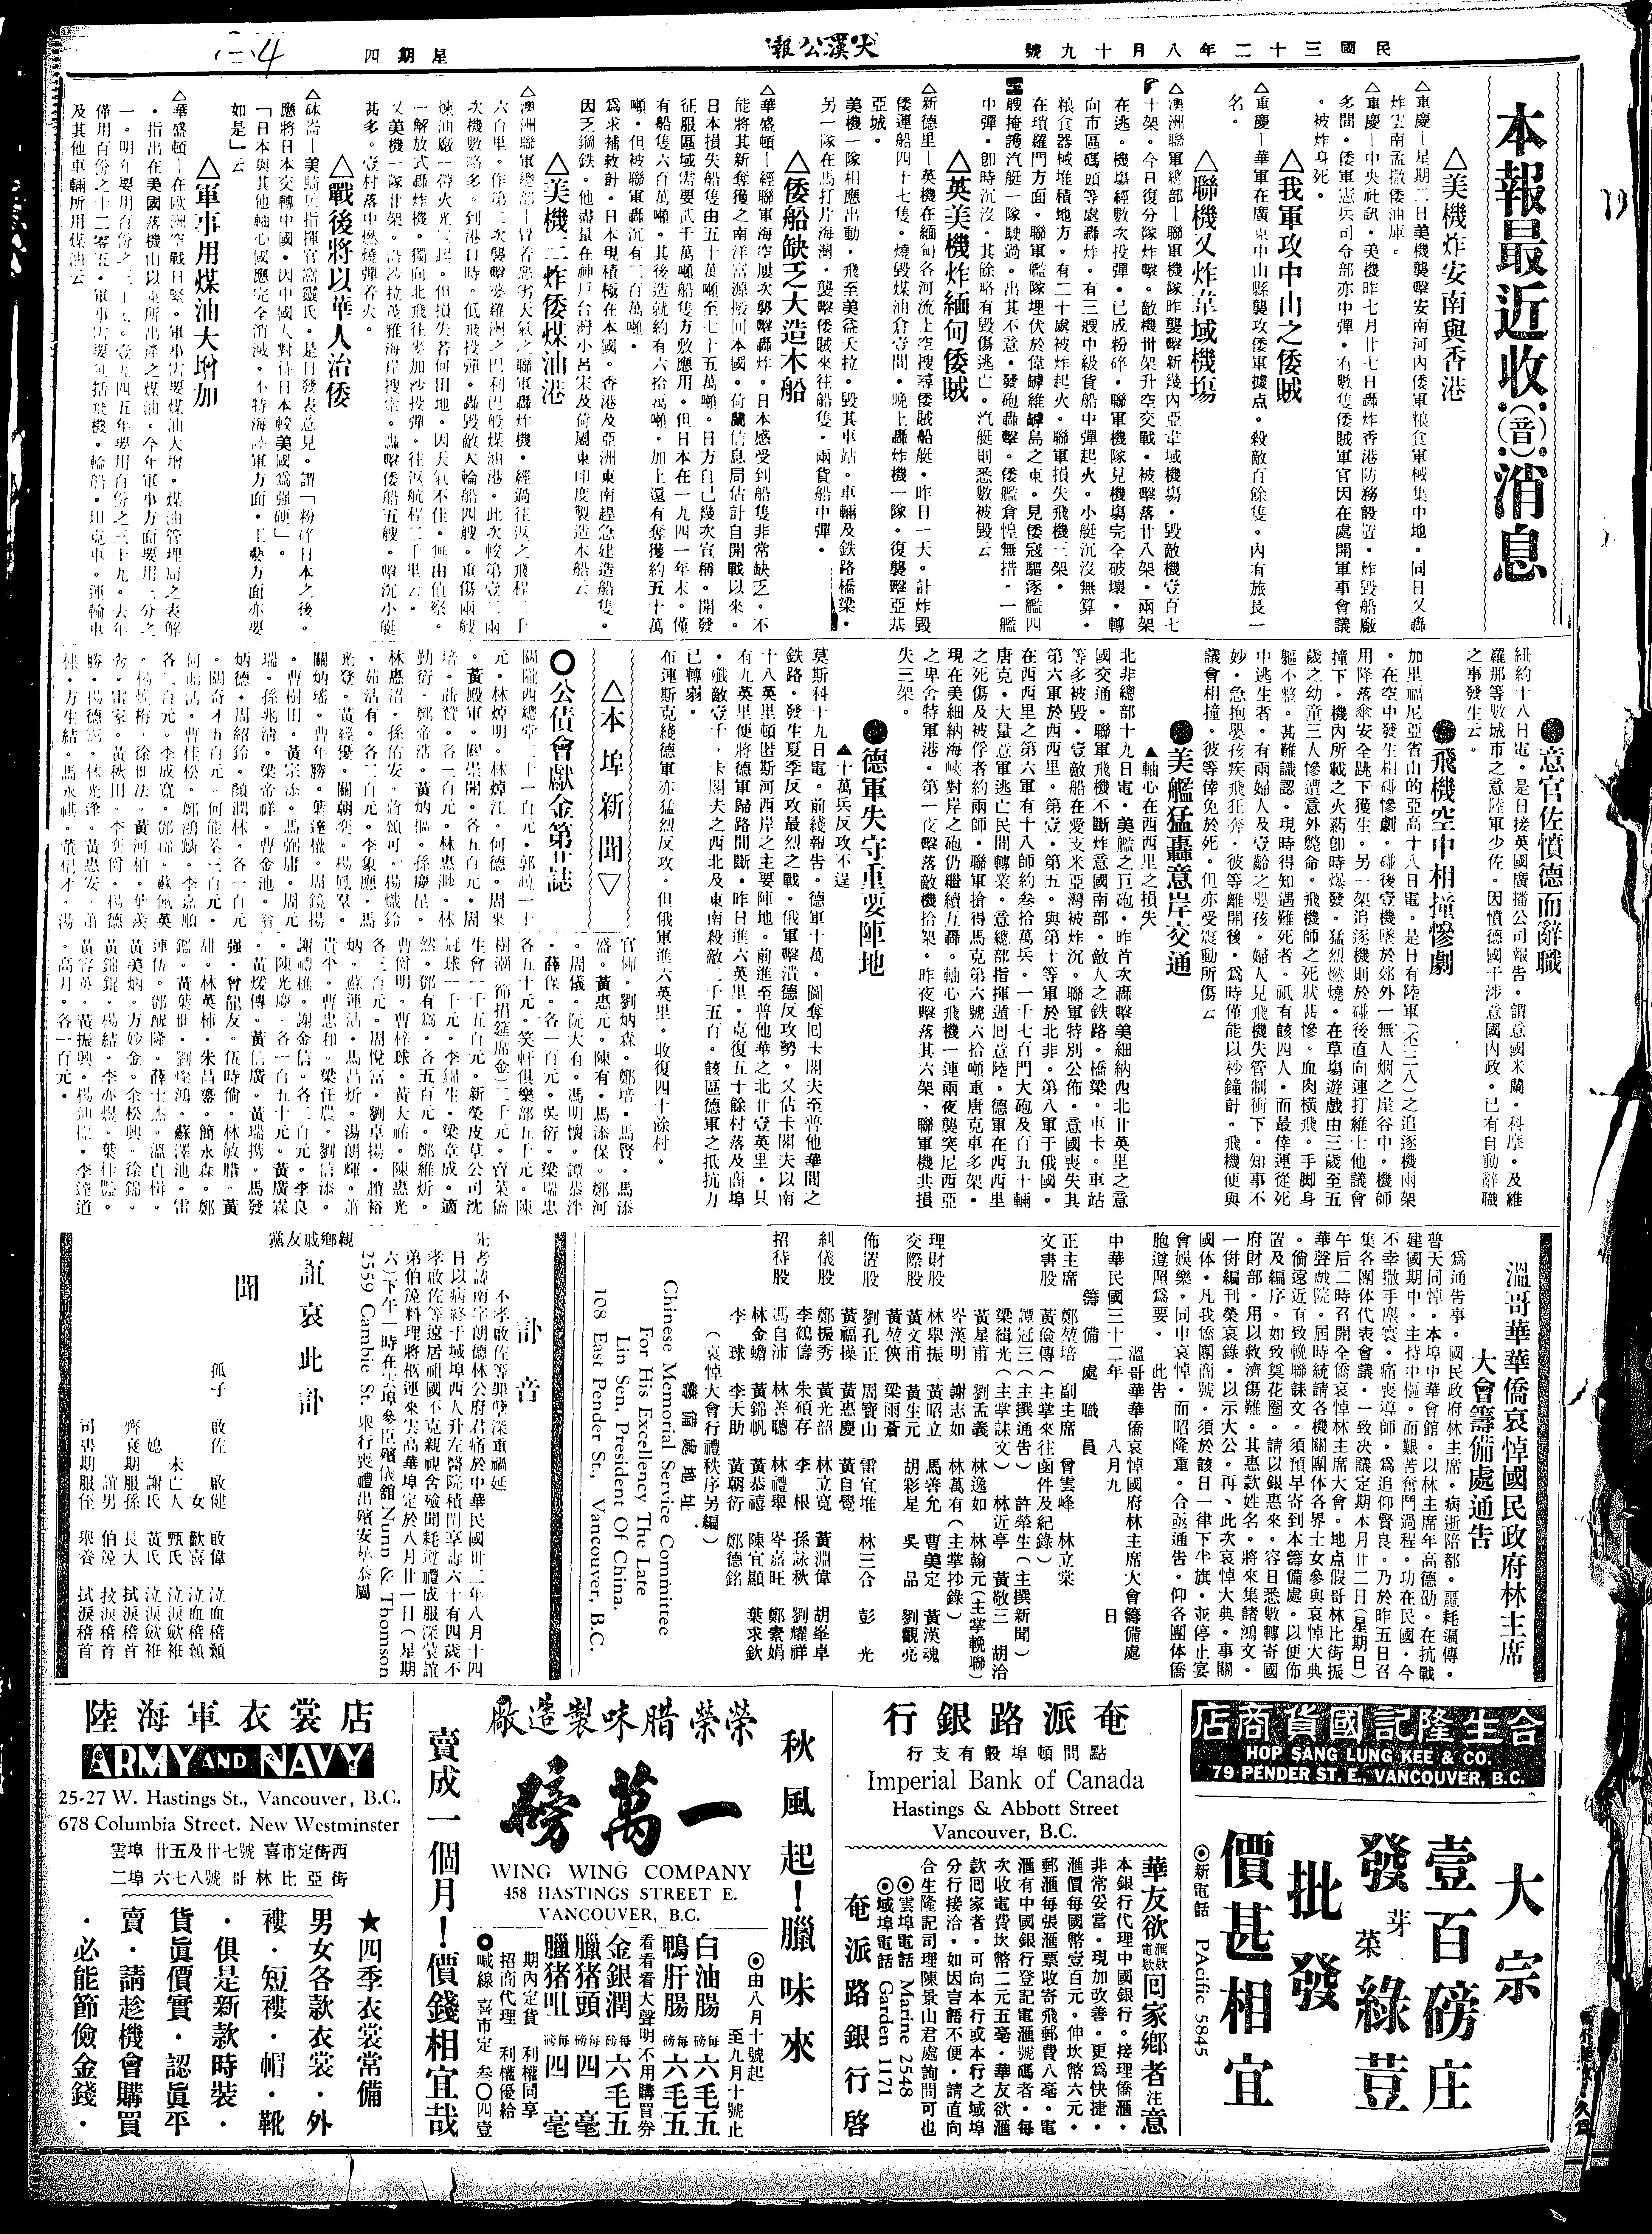 民國三十二年八月十九號
大漢公報
星期四
二 4
本報最近收(音)消息
△美機炸安南與香港
△重慶—星期二日美機襲擊安南河內倭軍粮食軍械集中地。同日又轟
炸雲南孟撒倭油庫。
△重慶—中央社訊。美機昨七月廿七日轟炸香港防務設置。炸毀船廠
多間。倭軍憲兵司令部亦中彈。有數隻倭賊軍官因在處開軍事會議
。被炸身死。
△我軍攻中山之倭賊
△重慶—華軍在廣東中山縣襲攻倭軍據点。殺敵百餘隻。內有旅長一
名。
△聯機又炸韋域機塲
△澳洲聯軍總部—聯軍機隊昨襲擊新幾內亞韋域機塲。毀敵機壹百七
十架。今日復分隊炸擊。敵機卅架升空交戰。被擊落廿八架。兩架
在逃。機塲經數次投彈。已成粉碎。聯軍機隊見機塲完全破壞。轉
向市區碼頭等處轟炸。有三艘中級貨船中彈起火。小艇沉沒無算。
粮食器械堆積地方。有二十處被炸起火。聯軍損失飛機三架。
在瑣羅門方面。聯軍艦隊埋伏於偉罅維罅島之東。見倭寇驅逐艦四
艘掩護汽艇一隊駛過。出其不意。發砲轟擊。倭艦倉惶無措。一艦
中彈。卽時沉沒。其餘略有毀傷逃亡。汽艇則悉數被毀云
△英美機炸緬甸倭賊
△新德里—英機在緬甸各河流上空搜尋倭賊船艇。昨日一天。計炸毀
倭運船四十七隻。燒毀煤油倉壹間。晚上轟炸機一隊。復襲擊亞基
亞城。
美機一隊相應出動。飛至美益天拉。毀其車站。車輛及鉄路橋梁。
另一隊在馬打片海灣。襲擊倭賊來往船隻。兩貨船中彈。
△倭船缺乏大造木船
△華盛頓—經聯軍海空屢次襲擊轟炸。日本感受到船隻非常缺乏。不
能將其新奪獲之南洋富源搬囘本國。荷蘭信息局估計自開戰以來。
日本損失船隻由五十萬噸至七十五萬噸。日方自己幾次宣稱。開發
征服區域需要弍千萬噸船隻方敷應用。但日本在一九四一年末。僅
有船隻六百萬噸。其後造就約有六拾萬噸。加上還有奪獲約五十萬
噸。但被聯軍轟沉有二百萬噸。
爲求補救計。日本現積極在本國。香港及亞洲東南趕急建造船隻。
因乏鋼鉄。他盡量在神戶台灣小呂宋及荷屬東印度製造木船云
△美機二炸倭煤油港
△澳洲聯軍總部—冒春惡劣天氣之聯軍轟炸機。經過往返之飛程二千
六百里。作第二次襲擊婆羅洲之巴利巴般煤油港。此次較第壹二兩
次機數略多。到港口時。低飛投彈。轟毀敵大輪船四艘。重傷兩艘
煉油廠一帶火光。但損失若何田地。因天氣不佳。無由偵察。
一解放式轟炸機。獨向北飛往麥加沙投彈。往返航程二千里云。
又美機一隊廿架。沿沙拉茂雅海岸搜索。轟擊倭船五艘。擊沉小艇
甚多。壹村落中燃燒彈着火。
△戰後將以華人治倭
△砵崙—美騎兵指揮官富靈氏。是日發表意見。謂「粉碎日本之後。
應將日本交轉中國。因中國人對待日本較美國爲强硬」。
「日本與其他軸心國應完全消滅。不特海陸軍方面。工藝方面亦要
如是」云
△軍事用煤油大增加
△華盛頓—在歐洲空戰日緊。軍事需要煤油大增。煤油管理局之表解
。指出在美國落機山以東所出產之煤油。今年軍事方面要用二分之
一。明年要用百份之三十七。壹九四五年要用百份之三十九。去年
僅用百份之十二零五。軍事需要包括飛機。輪船。坦克車。運輸車
及其他車輛所用煤油云
●意官佐憤德而辭職
紐約十八日電。是日接英國廣播公司報告。謂意國米蘭。科摩。及維
羅那等數城市之意陸軍少佐。因憤德國干涉意國內政。已有自動辭職
之事發生云。
●飛機空中相撞慘劇
加里福尼亞省山的亞高十八日電。是日有陸軍(不三八)之追逐機兩架
。在空中發生相碰慘劇。碰後壹機墜於郊外一無人烟之崖谷中。機師
用降落傘安全跳下獲生。另一架追逐機則於碰後直向連打維士他議會
撞下。機內所載之火葯卽時爆發。猛烈燃燒。在草塲遊戲由三歲至五
歲之幼童三人慘遭意外斃命。飛機師之死狀甚慘。血肉橫飛。手脚身
軀不整。甚難識認。現時得知遇難死者。祇有該四人。而最倖運從死
中逃生者。有兩婦人及壹齡之嬰孩。婦人見飛機失管制衝下。知事不
妙。急抱嬰孩疾飛狂奔。彼等離開後。爲時僅能以秒鐘計。飛機便與
議會相撞。彼等倖免於死。但亦受震動所傷云
●美艦猛轟意岸交通
▲軸心在西西里之損失
北非總部十九日電。美艦之巨砲。昨首次轟擊美細納西北廿英里之意
國交通。聯軍飛機不斷炸意國南部。敵人之鉄路。橋梁。車卡。車站
等多被毀。壹敵船在愛支米亞灣被炸沉。聯軍特別公佈。意國喪失其
第六軍於西西里。第壹。第五。與第十等軍於北非。第八軍于俄國。
在西西里之第六軍有十八師約叁拾萬兵。一千七百門大砲及百五十輛
唐克。大量意軍逃亡民間轉業。意總部指揮遁囘意陸。德軍在西西里
之死傷及被俘者約兩師。聯軍搶得馬克第六號六拾噸重唐克車多架。
現在美細納海峽對岸之砲仍繼續互轟。軸心飛機一連兩夜襲突尼西亞
之卑舍特軍港。第一夜擊落敵機拾架。昨夜擊落其六架。聯軍機共損
失三架。
●德軍失守重要陣地
▲十萬兵反攻不逞
莫斯科十九日電。前綫報告。德軍十萬。圖奪囘卡閣夫至普他華間之
鉄路。發生夏季反攻最烈之戰。俄軍擊潰德反攻勢。又佔卡閣夫以南
十八英里頓匿斯河西岸之主要陣地。前進至普他華之北廿壹英里。只
有九英里便將德軍歸路間斷。昨日進六英里。克復五十餘村落及商埠
。殲敵壹千。卡閣夫之西北及東南殺敵二千五百。該區德軍之抵抗力
已轉弱。
布連斯克綫德軍亦猛烈反攻。但俄軍進六英里。收復四十餘村。
△本埠新聞▽
◎公債會獻金第廿誌
關隴西總堂二十一百元。郭曉一十
元。林焯明。林焯江。何德。周來
。黃殿軍。關崇開。各五百元。周
培。各一百元。林
勤衍。鄭帝浩。黃炳樞。孫慶星。
林惠沼。孫佑安。蔣頌可。楊熾鈴
。茹沾有。各二百元。李象應。馬
光登。黃經優。關朝奕。楊鳳翠。
關炳瑤。曹年勝。葉達權。周鏡揚
。曹樹田。黃宗添。馬弼庸。周元
瑞。孫兆湳。梁帝祥。曹金池。翁
炳德。周紹鈴。顏潤林。各一百元
。關奇才五百元。何能榮二百元。
何贈活。曹桂松。鄭鴻驎。李嘉順
各二百元。李成寬。
。徐世法。黃河柏。
秀。雷家。黃秋田。李奕爵。楊德
勝。楊德。林光逢。黃惠安。蕭
棣。方生結。馬永祺。湯
官佛。劉炳森。鄭培。馬啓。馬添
盛。黃惠元。陳有。馬添保。鄭河
。周儀。阮大有。馮明懷。譚恭泮
。薛保。各一百元。吳衍。梁瑞忠
各五十元。笑軒俱樂部五千元。陳
樹潮(節招筵席金)二千元。賣菜僑
生會一千五百元。新榮皮草公司沈
冠球一千元。李錦生。梁章成。適
然。鄧有爲。各五百元。鄭維炘。
曹衍明。曹梓球。黃大祐。陳惠光
各三百元。周悅富。劉卓揚。趙裕
炳。蘇運沾。馬昌炘。湯朗輝。蕭
貴平。曹忠和。梁任農。劉信添。
謝禮樵。謝金信。各二百元。李良
。陳光慶。各一百五十元。黃廣霖
。黃煖傳。黃信廣。黃瑞携。馬發
强。曾龍友。伍時倘。林敏腊。黃
甜。林英柿。朱昌蕃。簡永森。鄭
鑑。黃葉世。劉燦鴻。蘇澤池。雷
連伍。鄧醒隆。薛士杰。溫貞楫。
黃美炳。方妙金。余松興。徐錦。
黃錦錕。楊結。李亦煜。葉仕豔。
黃容英。黃振興。楊迪標。李達道
。高月。各一百元。
溫哥華華僑哀悼國民政府林主席
大會籌備處通告
爲通告事。國民政府林主席。病逝陪都。噩耗遍傳。
普天同悼。本埠中華會館。以林主席年高德劭。在抗戰
建國期中。主持中樞。而艱苦奮鬥過程。功在民國。今
不幸撒手塵寰。痛喪導師。爲追仰賢良。乃於昨五日召
集各團体代表會議。一致決議定期本月廿二日(星期日)
午后二時召開全僑哀悼林主席大會。地点假哥林比街振
華聲戲院。屆時統請各機關團体各界士女參與哀悼大典
。倘遠近有致輓聯誄文。須預早寄到本籌備處。以便佈
置及編序。如致奠花圈。請以銀惠來。容日悉數轉寄國
府財部。用以救濟傷難。其惠款姓名。將來集諸鴻文。
一倂編刊榮哀錄。以示大公。再、此次哀悼大典。事關
國体。凡我僑團商號。須於該日一律下半旗。並停止宴
會娛樂。同申哀悼。而昭隆重。合亟通告。仰各團体僑
胞遵照爲要。 此告
溫哥華華僑哀悼國府林主席大會籌備處
中華民國三十二年 八月九 日
籌備處職員
正主席 鄭堃培 副主席 曾雲峰 林立棠
文書股 黃儉傳(主掌來往函件及紀錄)
譚冠三(主撰通告) 許犖生(主撰新聞)
梁緝光(主掌誄文) 林近亭 黃敬三 胡洽
黃星甫 劉孟義 林逸如 林翰元(主掌輓聯)
岑漢明 謝志如 林萬有(主掌抄錄)
理財股 林舉振 黃昭立 馬善允 曹美定 黃漢魂
交際股 黃文甫 黃生元 胡彩星 吳品 劉觀亮
黃堃俠 梁雨蒼
佈置股 劉孔正 周寶山 雷宜堆 林三合 彭光
黃福操 黃惠慶 黃自覺
糾儀股 鄭振秀 黃光韶 林立寬 黃淵偉 胡峯卓
李鶴儔 朱碩存 李根 孫詠秋 劉耀祥
招待股 馮自沛 林善聰 林禮舉 岑嘉旺 鄭素娟
林金蟾 黃錦帆 黃恭禧 陳宜顯 葉求欽
李球 李天助 黃朝衍 鄭德銘
(哀悼大會行禮秩序另編)
籌備處地址
Chinese Memorial Service Committee
For His Excellency The Late
Lin Sen, President Of China.
108 East Pender St., Vancouver, B.C.
訃音
不孝啟佐等罪孽深重禍延
先考諱南字朗德林公府君痛於中華民國卅二年八月十四
日以病終于域埠西人升左醫院積閏享壽六十有四歲不
孝啟佐等遠居祖國不克親視含殮聞耗遵禮成服深蒙誼
弟伯茂料理將柩運來雲高華埠定於八月廿一日(星期
六)下午一時在雲埠參臣殯儀舘 Nunn & Thomson
2559 Cambie St. 舉行喪禮出殯安葬忝屬
親鄉戚友黨
誼哀此訃
聞
孤子 啟佐 啟健 啟偉 泣血稽顙
女 歡喜 泣血稽顙
未亡人 甄氏 泣淚歛袵
媳 謝氏 黃氏 泣淚歛袵
齊衰期服孫 長大 拭淚稽首
誼男 伯茂 抆淚稽首
司書期服侄 舉養 拭淚稽首
合生隆記國貨商店
HOP SANG LUNG KEE & CO.
79 PENDER ST. E., VANCOUVER, B.C.
大宗
壹百磅庄
發芽菜綠荳
批發
價甚相宜
◎新電話 PAcific 5845
奄派路銀行
點問頓埠設有支行
Imperial Bank of Canada
Hastings & Abbott Street
Vancouver, B.C.
華友欲滙欵電欵囘家鄉者注意
本銀行代理中國銀行。接理僑滙。
非常妥當。現加改善。更爲快捷。
滙價每國幣壹百元。伸坎幣六元。
郵滙每張滙票收寄飛郵費八毫。電
滙有中國銀行登記電滙號碼者。每
次收電費坎幣二元五毫。華友欲滙
款囘家者。可向本行或本行之域埠
分行接洽。如因言語不便。請直向
合生隆記司理陳景山君處詢問可也
◎雲埠電話 Marine 2548
◎域埠電話 Garden 1171
奄派路銀行啓
秋風起!臘味來
榮榮腊味製造廠
一萬磅
WING WING COMPANY
458 HASTINGS STREET E.
VANCOUVER, B.C.
◎由八月十號起
至九月十號止
白油腸 每磅 六毛五
鴨肝腸 每磅 六毛五
看看看大聲明不用購買券
金銀潤 每磅 六毛五
臘猪頭 每磅 四毫
臘猪咀 每磅 四毫
期內定貨 利權同享
招商代理 利權優給
◎喊線 喜市定 叁〇四壹
賣成一個月!價錢相宜哉
陸海軍衣裳店
ARMY AND NAVY
25-27 W. Hastings St., Vancouver, B.C.
678 Columbia Street. New Westminster
雲埠 廿五及廿七號 喜市定街西
二埠 六七八號 哥林比亞街
★四季衣裳常備
男女各款衣裳。外
褸。短褸。帽。靴
。俱是新款時裝。
貨眞價實。認眞平
賣。請趁機會購買
。必能節儉金錢。